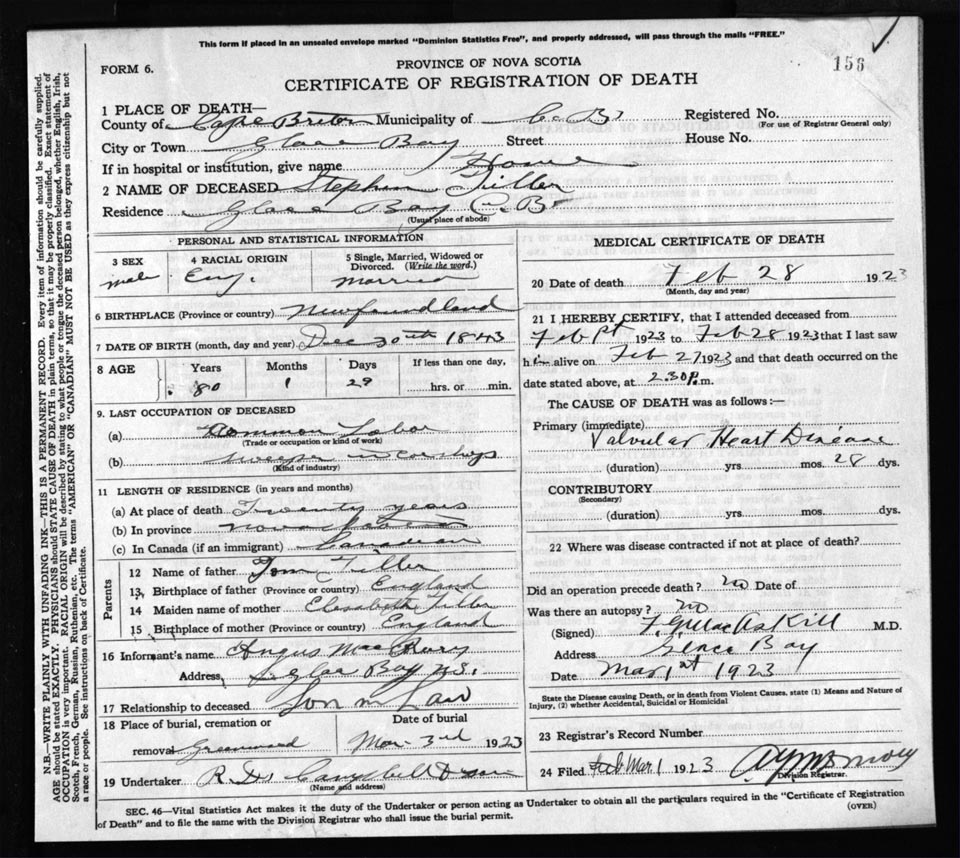 This form if placed in an unsealed envelope marked "Dominion Statistics Free", and properly addressed, will pass through the mails "FREE."
156
FORM 6.
PROVINCE OF NOVA SCOTIA
CERTIFICATE OF REGISTRATION OF DEATH
N.B.—WRITE PLAINLY WITH UNFADING INK—THIS IS A PERMANENT RECORD. Every item of information should be carefully supplied.
AGE should be stated EXACTLY. PHYSICIANS should STATE CAUSE OF DEATH in plain terms, so that it may be properly classified. Exact statement of
OCCUPATION is very important. RACIAL ORIGIN will be described by stating to what people or tongue the deceased person belonged, whether English, Irish,
Scotch, French, German, Russian, Ruthenian, etc. The terms "AMERICAN" OR "CANADIAN" MUST NOT BE USED as they express citizenship but not
a race or people. See instructions on back of Certificate.
1 PLACE OF DEATH—
County of Cape Breton Municipality of C.B. Registered No.
(For use of Registrar General only)
City or Town Glace Bay Street House No.
If in hospital or institution, give name Home
2 NAME OF DECEASED Stephen Tiller
Residence Glace Bay C.B.
(Usual place of abode)
PERSONAL AND STATISTICAL INFORMATION
3 SEX male 4 RACIAL ORIGIN Eng. 5 Single, Married, Widowed or Divorced. (Write the word.) Married
6 BIRTHPLACE (Province or country) Newfoundland
7 DATE OF BIRTH (month, day and year) Dec 30th 1843
8 AGE Years 80 Months 1 Days 29 If less than one day, hrs. or min.
9. LAST OCCUPATION OF DECEASED
(a) Common Labor
(Trade or occupation or kind of work)
(b)
(Kind of industry)
11 LENGTH OF RESIDENCE (in years and months)
(a) At place of death Twenty years
(b) In province Nova Scotia
(c) In Canada (if an immigrant) Canadian
Parents
12 Name of father Tom Tiller
13 Birthplace of father (Province or country) England
14 Maiden name of mother Elesabeth Tiller
15 Birthplace of mother (Province or country) England
16 Informant's name Angus MacRory
Address, Glace Bay N.S.
17 Relationship to deceased Son in Law
18 Place of burial, cremation or removal Greenwood Date of burial Mar 3rd 1923
19 Undertaker R.D. Campbell
(Name and address)
MEDICAL CERTIFICATE OF DEATH
20 Date of death Feb 28 1923
(Month, day and year)
21 I HEREBY CERTIFY, that I attended deceased from
Feb 1st 1923 to Feb 28 1923 that I last saw
him alive on Feb 27 1923 and that death occurred on the
date stated above, at 2.30 P.m.
The CAUSE OF DEATH was as follows:—
Primary (immediate)
Valvular Heart Disease
(duration) yrs. mos. 28 dys.
CONTRIBUTORY
(Secondary)
(duration) yrs. mos. dys.
22 Where was disease contracted if not at place of death?
Did an operation precede death? no Date of
Was there an autopsy? no
(Signed) MacAskill M.D.
Address Glace Bay
Date Mar 1st 1923
State the Disease causing Death, or in death from Violent Causes, state (1) Means and Nature of
Injury, (2) whether Accidental, Suicidal or Homicidal
23 Registrar's Record Number
24 Filed Feb Mar 1 1923
Division Registrar.
SEC. 46—Vital Statistics Act makes it the duty of the Undertaker or person acting as Undertaker to obtain all the particulars required in the "Certificate of Registration
of Death" and to file the same with the Division Registrar who shall issue the burial permit.
(OVER)